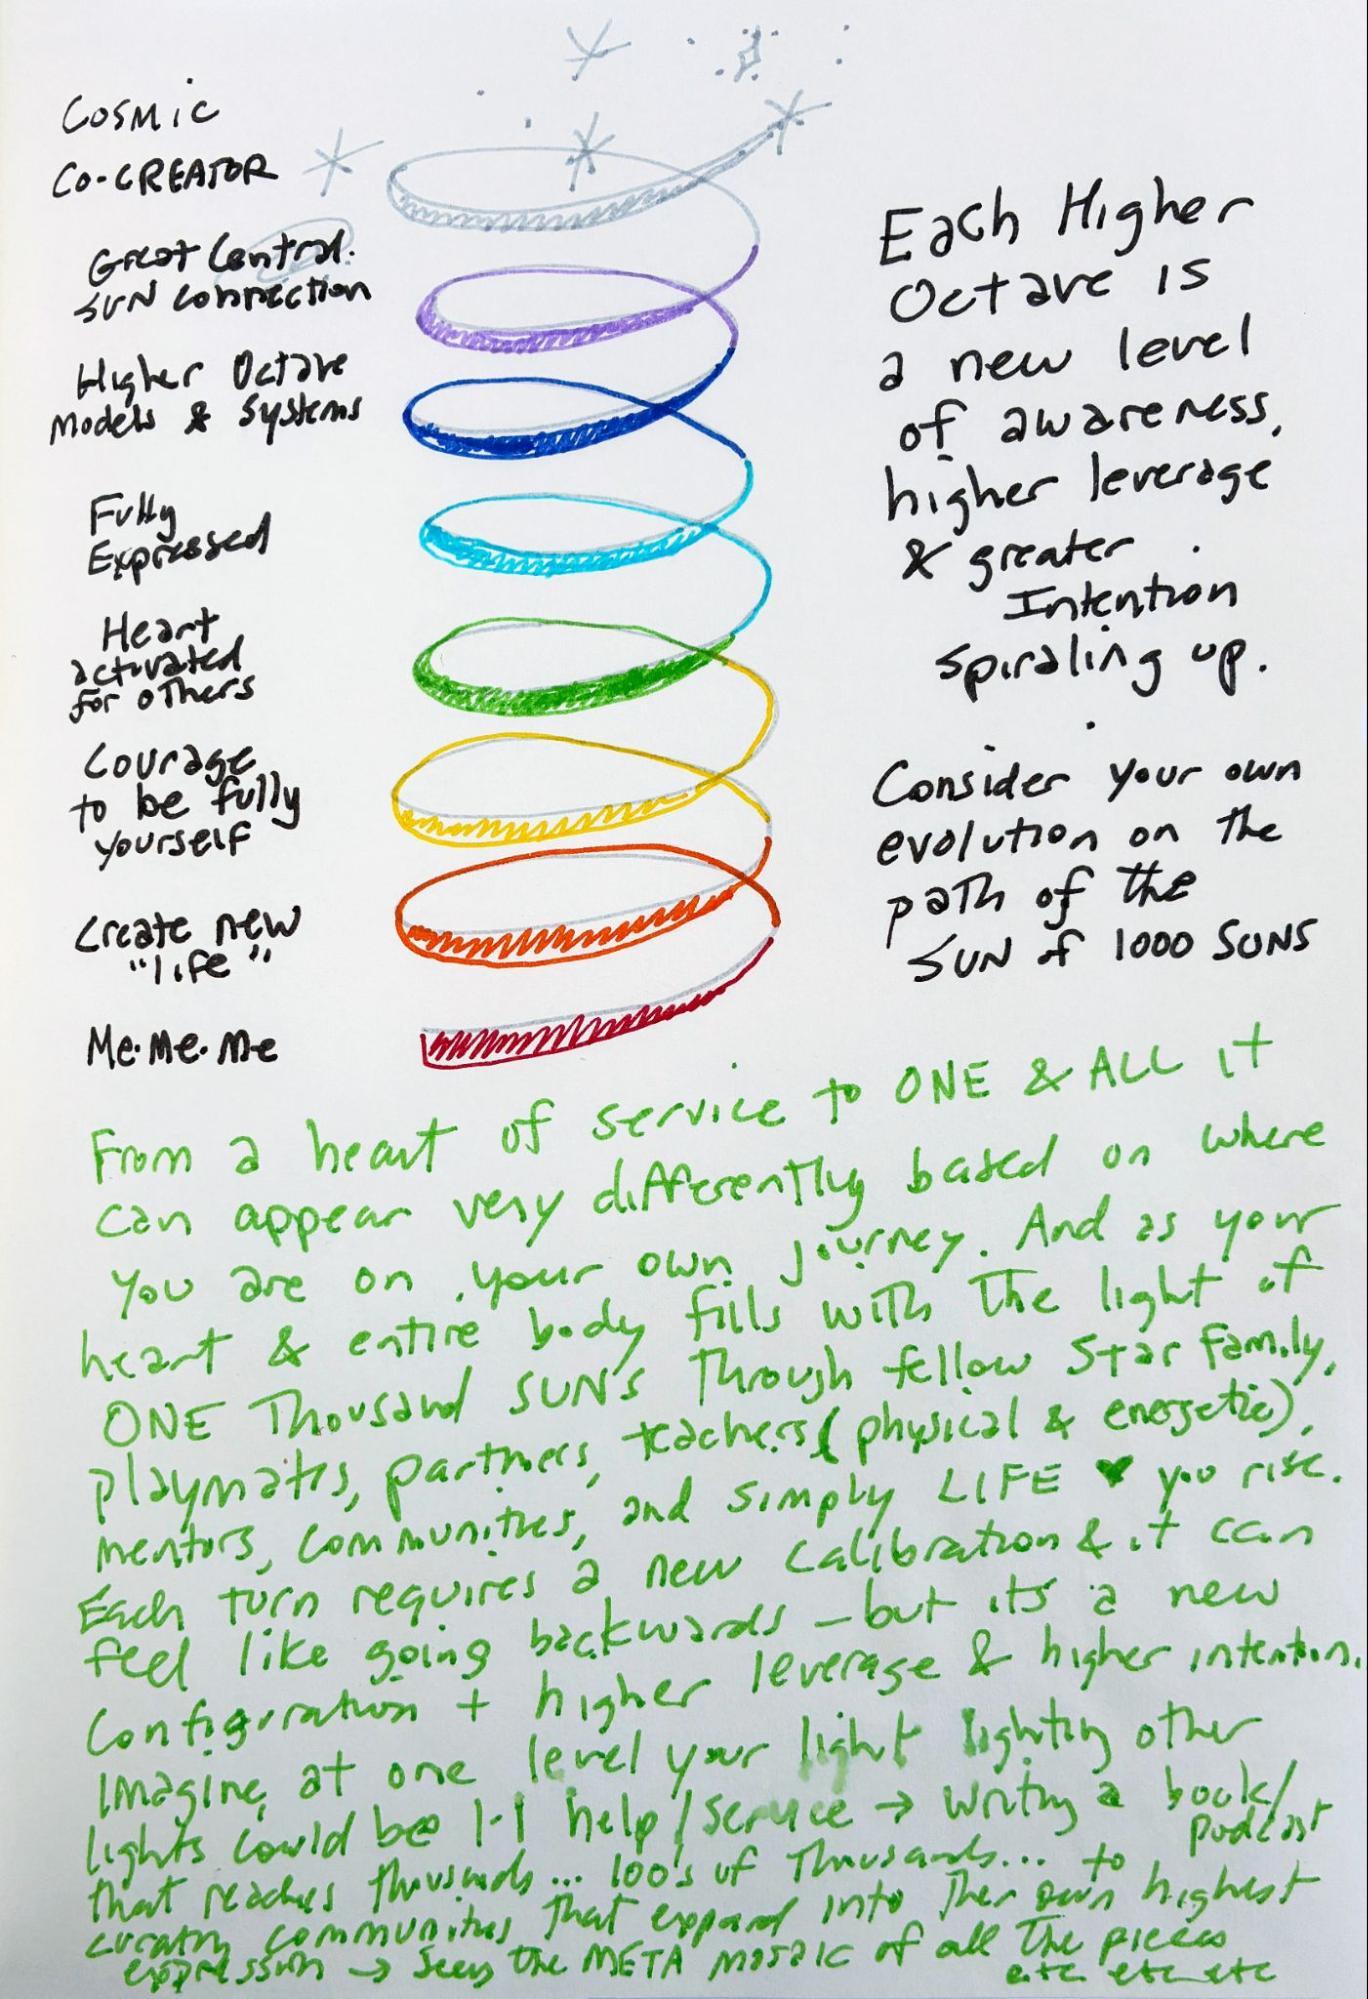 COSMIC
CO-CREATOR
Great Central
SUN connection
Higher Octave
Models & Systems
Fully
Expressed
Heart
activated
for others
Courage
to be fully
yourself
Create new
"life"
Me·Me·Me
Each Higher
Octave is
a new level
of awareness,
higher leverage
& greater
Intention
spiraling up.
Consider your own
evolution on the
path of the
SUN of 1000 SUNS
From a heart of service to ONE & ALL it
can appear very differently based on where
you are on your own journey. And as your
heart & entire body fills with the light of
ONE Thousand SUNS Through fellow Star Family,
playmates, partners, teachers (physical & energetic),
mentors, communities, and simply LIFE ♥ you rise.
Each turn requires a new calibration & it can
feel like going backwards – but its a new
configuration + higher leverage & higher intention.
Imagine, at one level your light lighting other
lights could be 1-1 help/service → writing a book/
podcast
that reaches thousands... 100's of Thousands... to
curating communities that expand into Their own highest
expression → Seeing the META mosaic of all The pieces
etc etc etc